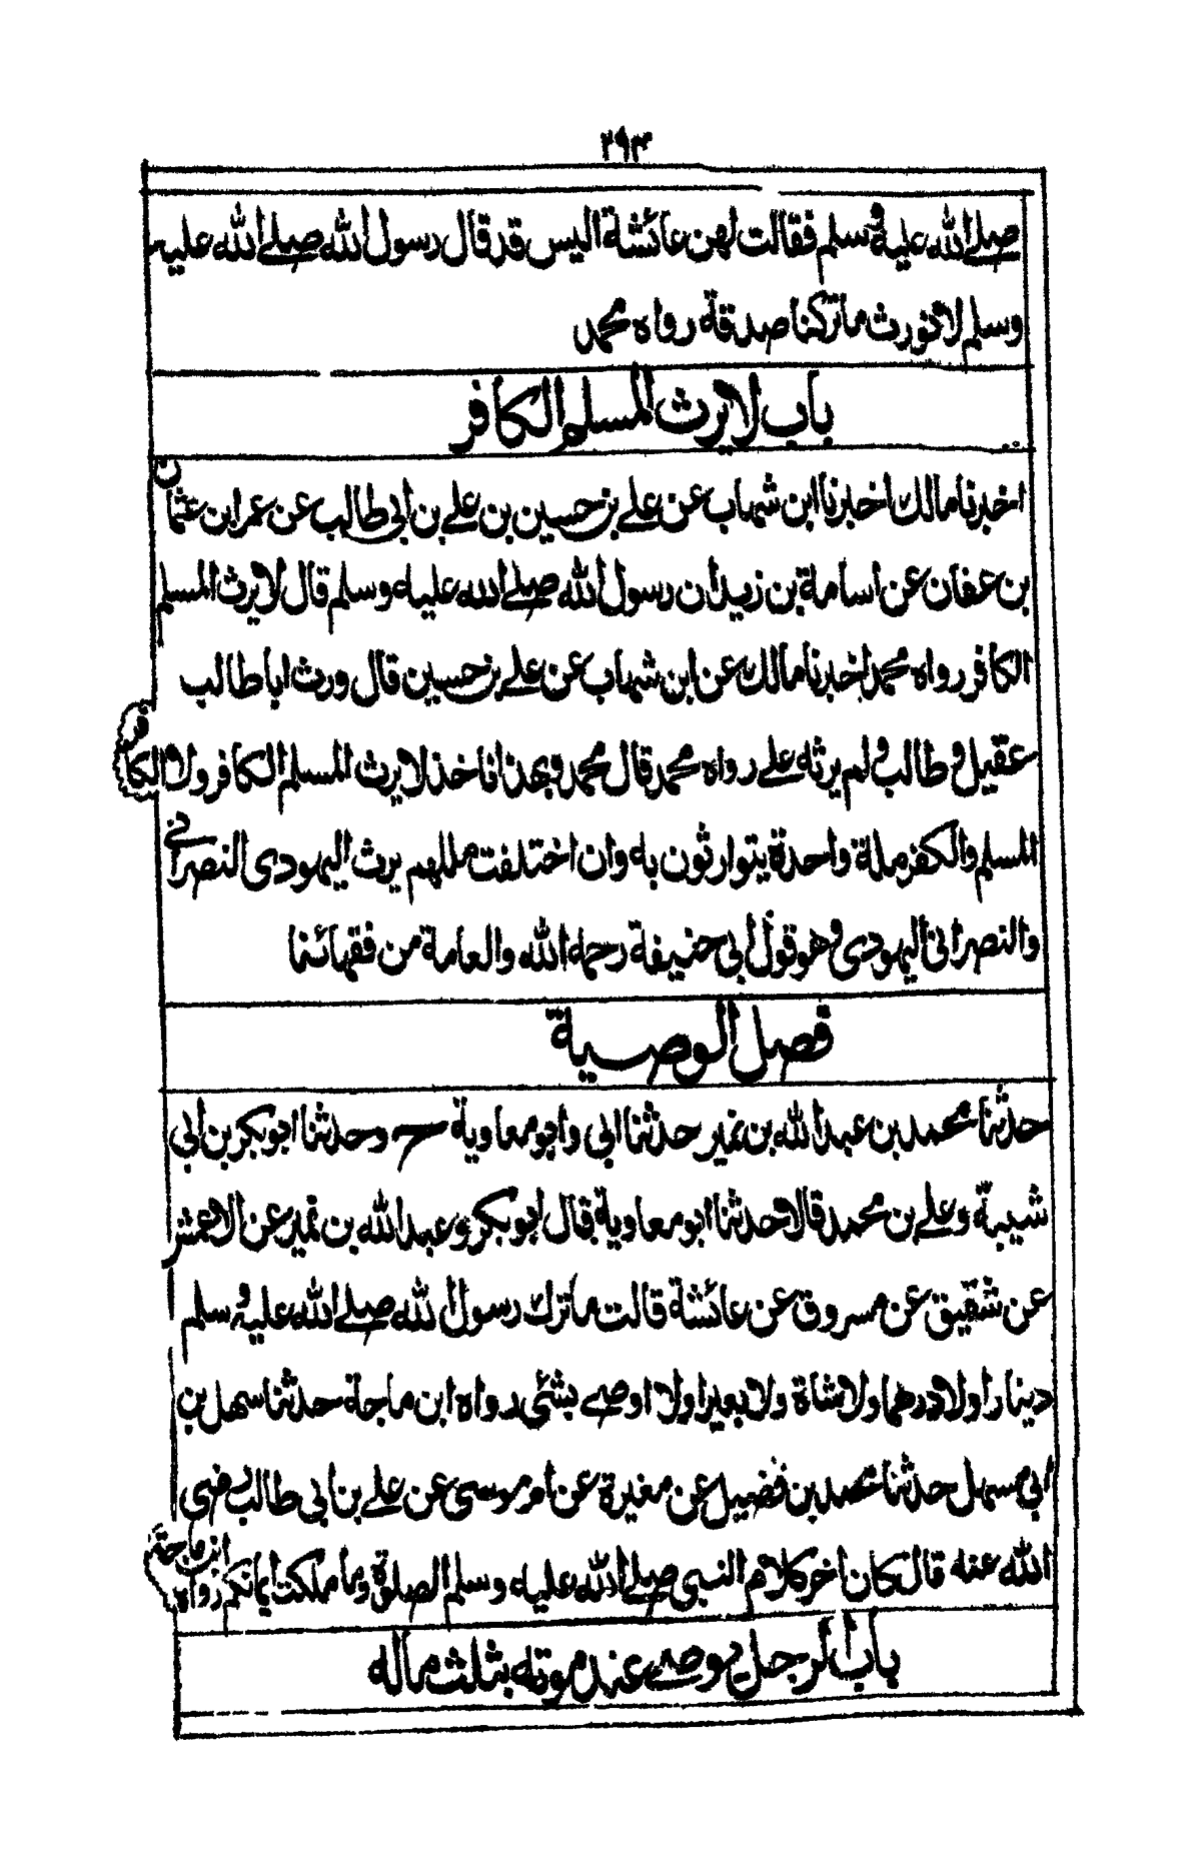 ۲۹۴
صلے الله عليه وسلم فقالت لهن عائشة اليس قد قال رسول الله صلے الله عليه
وسلم لا نورث ما تركنا صدقة رواه محمد
باب لا يرث المسلم الكافر
اخبرنا مالك اخبرنا ابن شهاب عن علے بن حسين بن علے بن ابي طالب عن عمر ابن عثمان
بن عفان عن اسامة بن زيد ان رسول الله صلے الله عليه وسلم قال لا يرث المسلم
الكافر رواه محمد اخبرنا مالك عن ابن شهاب عن علے بن حسين قال ورث ابا طالب
عقيل و طالب و لم يرثه علے رواه محمد قال محمد و بهذا ناخذ لا يرث المسلم الكافر ولا الكافر
المسلم والكفر ملة واحدة يتوارثون به وان اختلفت مللهم يرث اليهودى النصرانى
والنصرانى اليهودى و هو قول ابى حنيفة رحمه الله والعامة من فقهائنا
فصل الوصية
حدثنا محمد بن عبد الله بن نمير حدثنا ابى وابو معاوية ح وحدثنا ابو بكر بن ابى
شيبة و علے بن محمد قالا حدثنا ابو معاوية قال ابو بكر و عبد الله بن نمير عن الاعمش
عن شقيق عن مسروق عن عائشة قالت ما ترك رسول الله صلے الله عليه و سلم
دينارا ولا درهما ولا شاة ولا بعيرا ولا اوصے بشئى رواه ابن ماجة حدثنا سهل بن
ابى سهل حدثنا محمد بن فضيل عن مغيرة عن ام موسى عن علے بن ابى طالب رضى
الله عنه قال كان اخر كلام النبى صلے الله عليه وسلم الصلوة وما ملكت ايمانكم رواه ابن ماجة
باب الرجل يوصے عند موته بثلث ماله